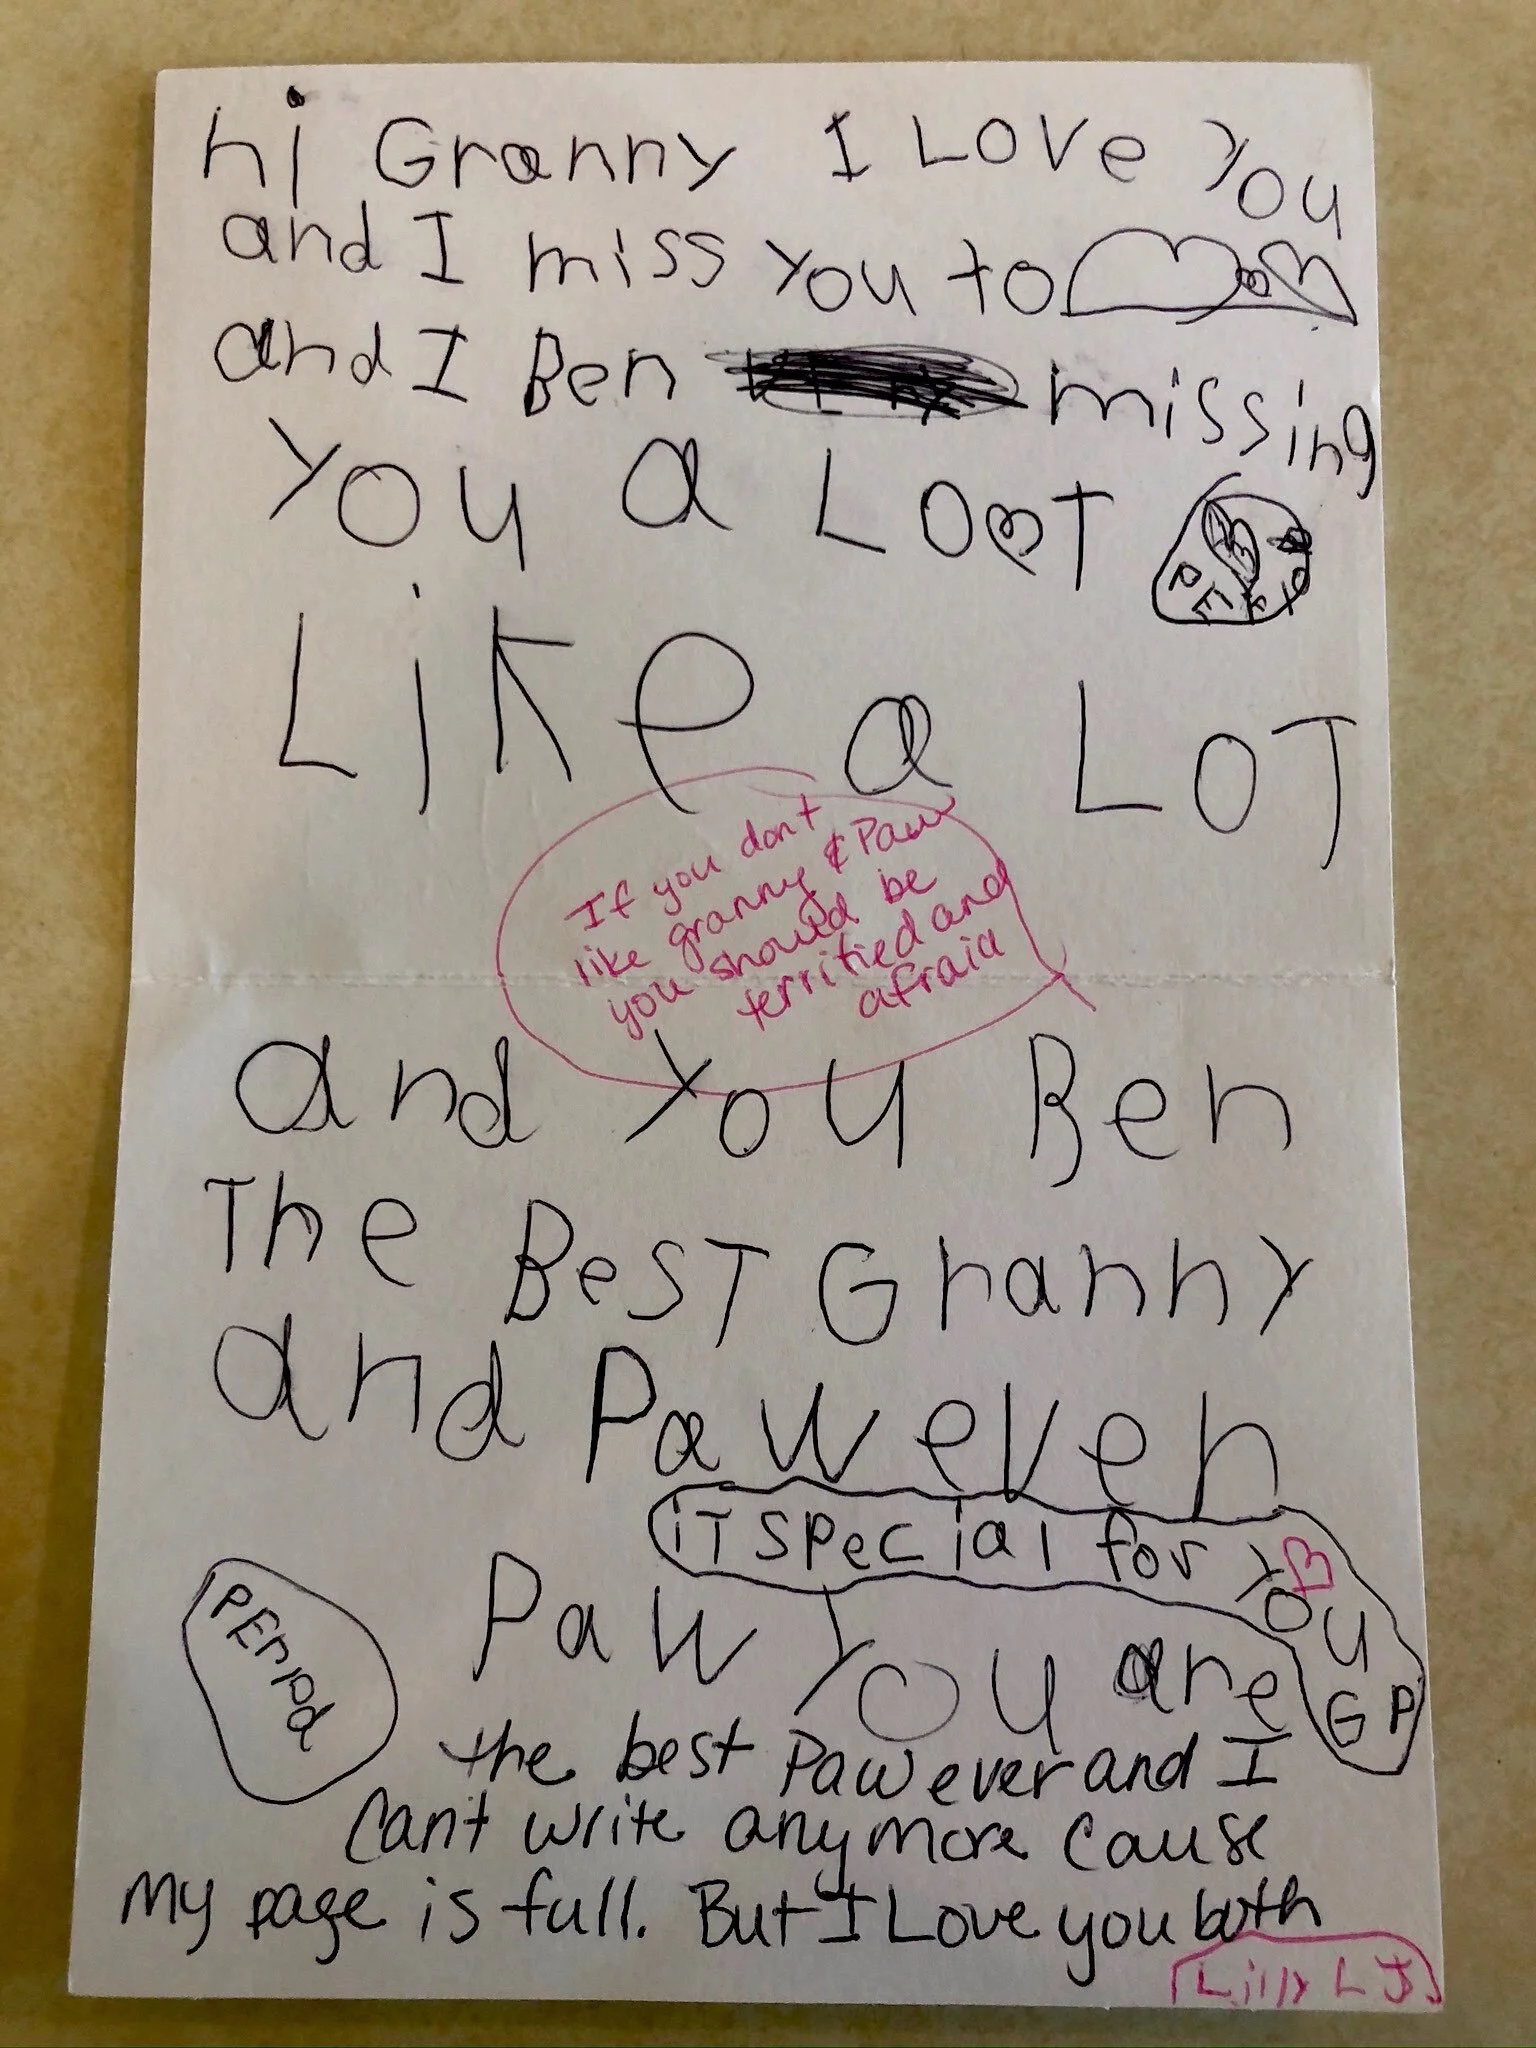 hi Granny I Love You
and I miss you to
and I Ben missing
You a Lot
Like a LoT
If you dont
like granny & Paw
you should be
terrified and
afraid
and You Ben
The BesT Granny
and Paw even
iT SPecial for You
G P
PEriod
Paw You are
the best Paw ever and I
Cant write anymore Cause
My page is full. But I Love you both
Lilly L J